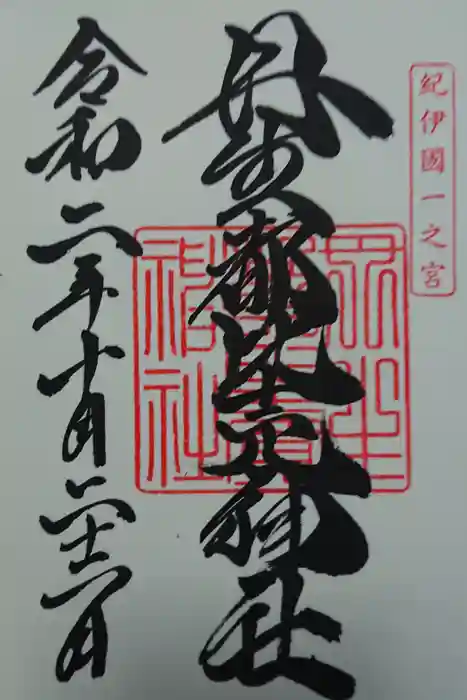 紀伊國一之宮
丹生都比売神社
令和二年十月二十二日